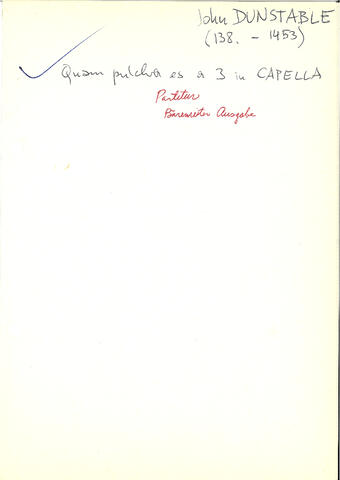 John DUNSTABLE
(138. - 1453)
Quam pulchra es a 3 in CAPELLA
Partitur
Bärenreiter Ausgabe